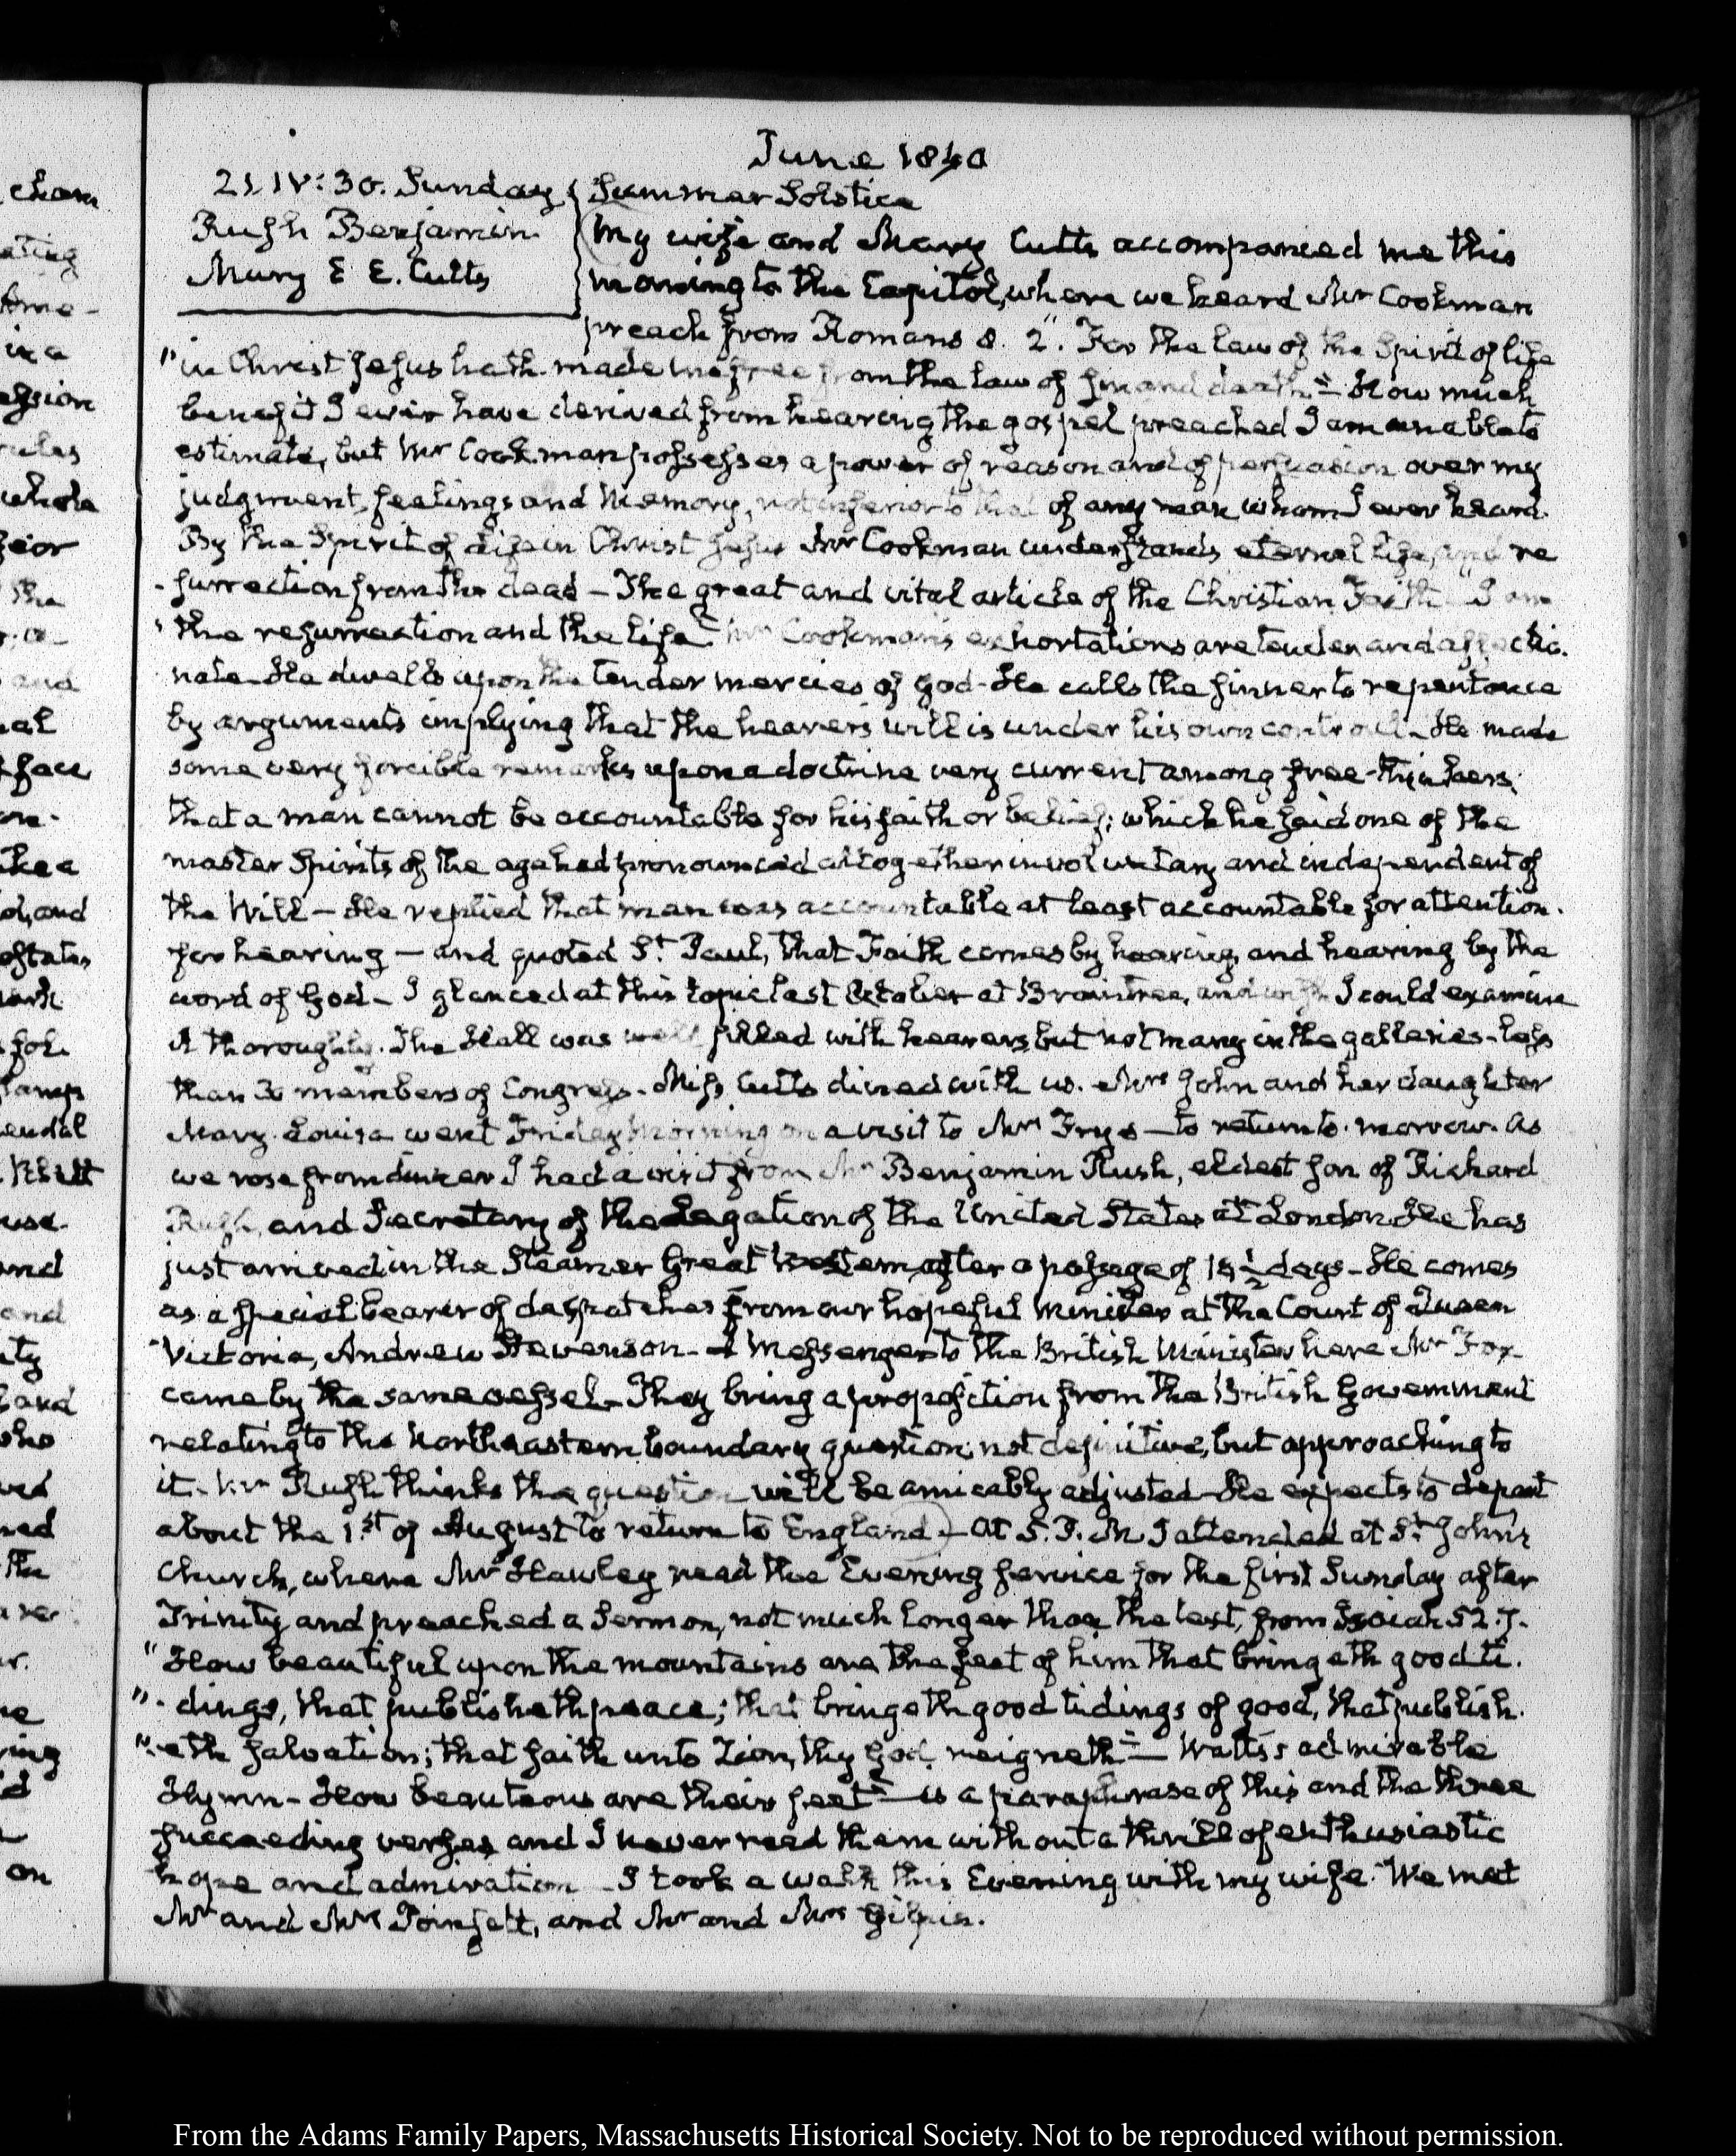 June 1840
21. IV:30. Sunday
Rush Benjamin
Mary E E. Cutts
Summer Solstice
My wife and Mary Cutts accompanied me this
morning to the Capitol, where we heard Mr Cookman
preach from Romans 8. 2. "For the law of the Spirit of life
"in Christ Jesus hath made me free from the law of sin and death"— How much
benefit I ever have derived from hearing the gospel preached I am unable to
estimate, but Mr Cookman possesses a power of reason and of persuasion over my
judgment, feelings and memory, not inferior to that of any man whom I ever heard.
By the Spirit of Life in Christ Jesus Mr Cookman understands eternal life, and re
-surrection from the dead — The great and vital article of the Christian Faith "I am
"the resurrection and the life" Mr Cookman's exhortations are tender and affectio.
nate— He dwells upon the tender mercies of God— He calls the sinner to repentance
by arguments implying that the hearer's will is under his own controul— He made
some very forcible remarks upon a doctrine very current among free-thinkers;
that a man cannot be accountable for his faith or belief; which he said one of the
master Spirits of the age had pronounced altogether involuntary and independent of
the Will — He replied that man was accountable at least accountable for attention.
for hearing — and quoted St. Paul, that Faith comes by hearing, and hearing by the
word of God— I glanced at this topic last October at Braintree, and wish I could examine
it thoroughly. The Hall was well filled with hearers, but not many in the galleries- less
than 30 members of Congress- Miss Cutts dined with us. Mrs John and her daughter
Mary Louisa went Friday Morning on a visit to Mrs Frye— to return to-morrow. As
we rose from dinner I had a visit from Mr Benjamin Rush, eldest son of Richard
Rush, and Secretary of the Legation of the United States at London. He has
just arrived in the Steamer Great Western after a passage of 15 1/2 days— He comes
as a special bearer of despatches from our hopeful Minister at the Court of Queen
Victoria, Andrew Stevenson— A Messenger to the British Minister here Mr Fox
came by the same vessel— They bring a proposition from the British Government
relating to the Northeastern boundary question, not definitive, but approaching to
it— Mr Rush thinks the question will be amicably adjusted— He expects to depart
about the 1st of August to return to England) — At 5. P. M I attended at St John's
Church, where Mr Hawley read the Evening service for the first Sunday after
Trinity and preached a Sermon, not much longer than the last, from Isaiah 52. 7.
"How beautiful upon the mountains are the feet of him that bringeth good ti.
"-dings, that publisheth peace; that bringeth good tidings of good, that publish.
"-eth salvation; that saith unto Zion, thy God, reigneth"— Watts's admirable
Hymn— How beauteous are their feet"— is a paraphrase of this and the three
succeeding verses and I never read them without a thrill of enthusiastic
hope and admiration — I took a walk this Evening with my wife. We met
Mr and Mrs Poinsett, and Mr and Mrs Gilpin.
From the Adams Family Papers, Massachusetts Historical Society. Not to be reproduced without permission.